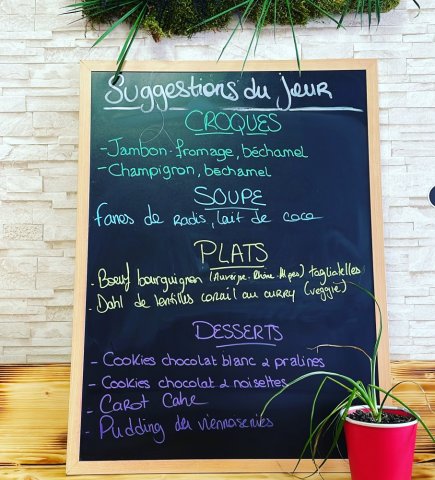 Suggestions du jour
CROQUES
- Jambon-fromage, béchamel
- Champignon, bechamel
SOUPE
fanes de radis, lait de coco
PLATS
- Bœuf bourguignon (Auvergne-Rhône-Alpes) tagliatelles
- Dahl de lentilles corail au curry (veggie)
DESSERTS
- Cookies chocolat blanc & pralines
- Cookies chocolat & noisettes
- Carot Cake
- Pudding de viennoiseries